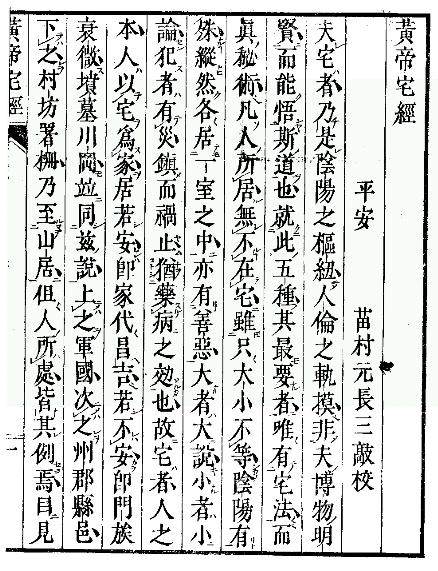 黃帝宅經
平安 苗村元長三敲校
夫宅者乃是陰陽之樞紐人倫之軌摸非夫博物明
賢而能悟斯道也就此五種其最要者唯有宅法而
眞秘術凡人所居無不在宅雖只大小不等陰陽有
殊縱然各居一室之中亦有善惡大者大說小者小
論犯者有災鎮而禍止猶藥病之効也故宅者人之
本人以宅爲家居若安卽家代昌吉若不安卽門族
衰微墳墓川岡並同茲說上之軍國次之州郡縣邑
下之村坊署柵乃至山居但人所處皆其例焉目見
黃帝宅經 一